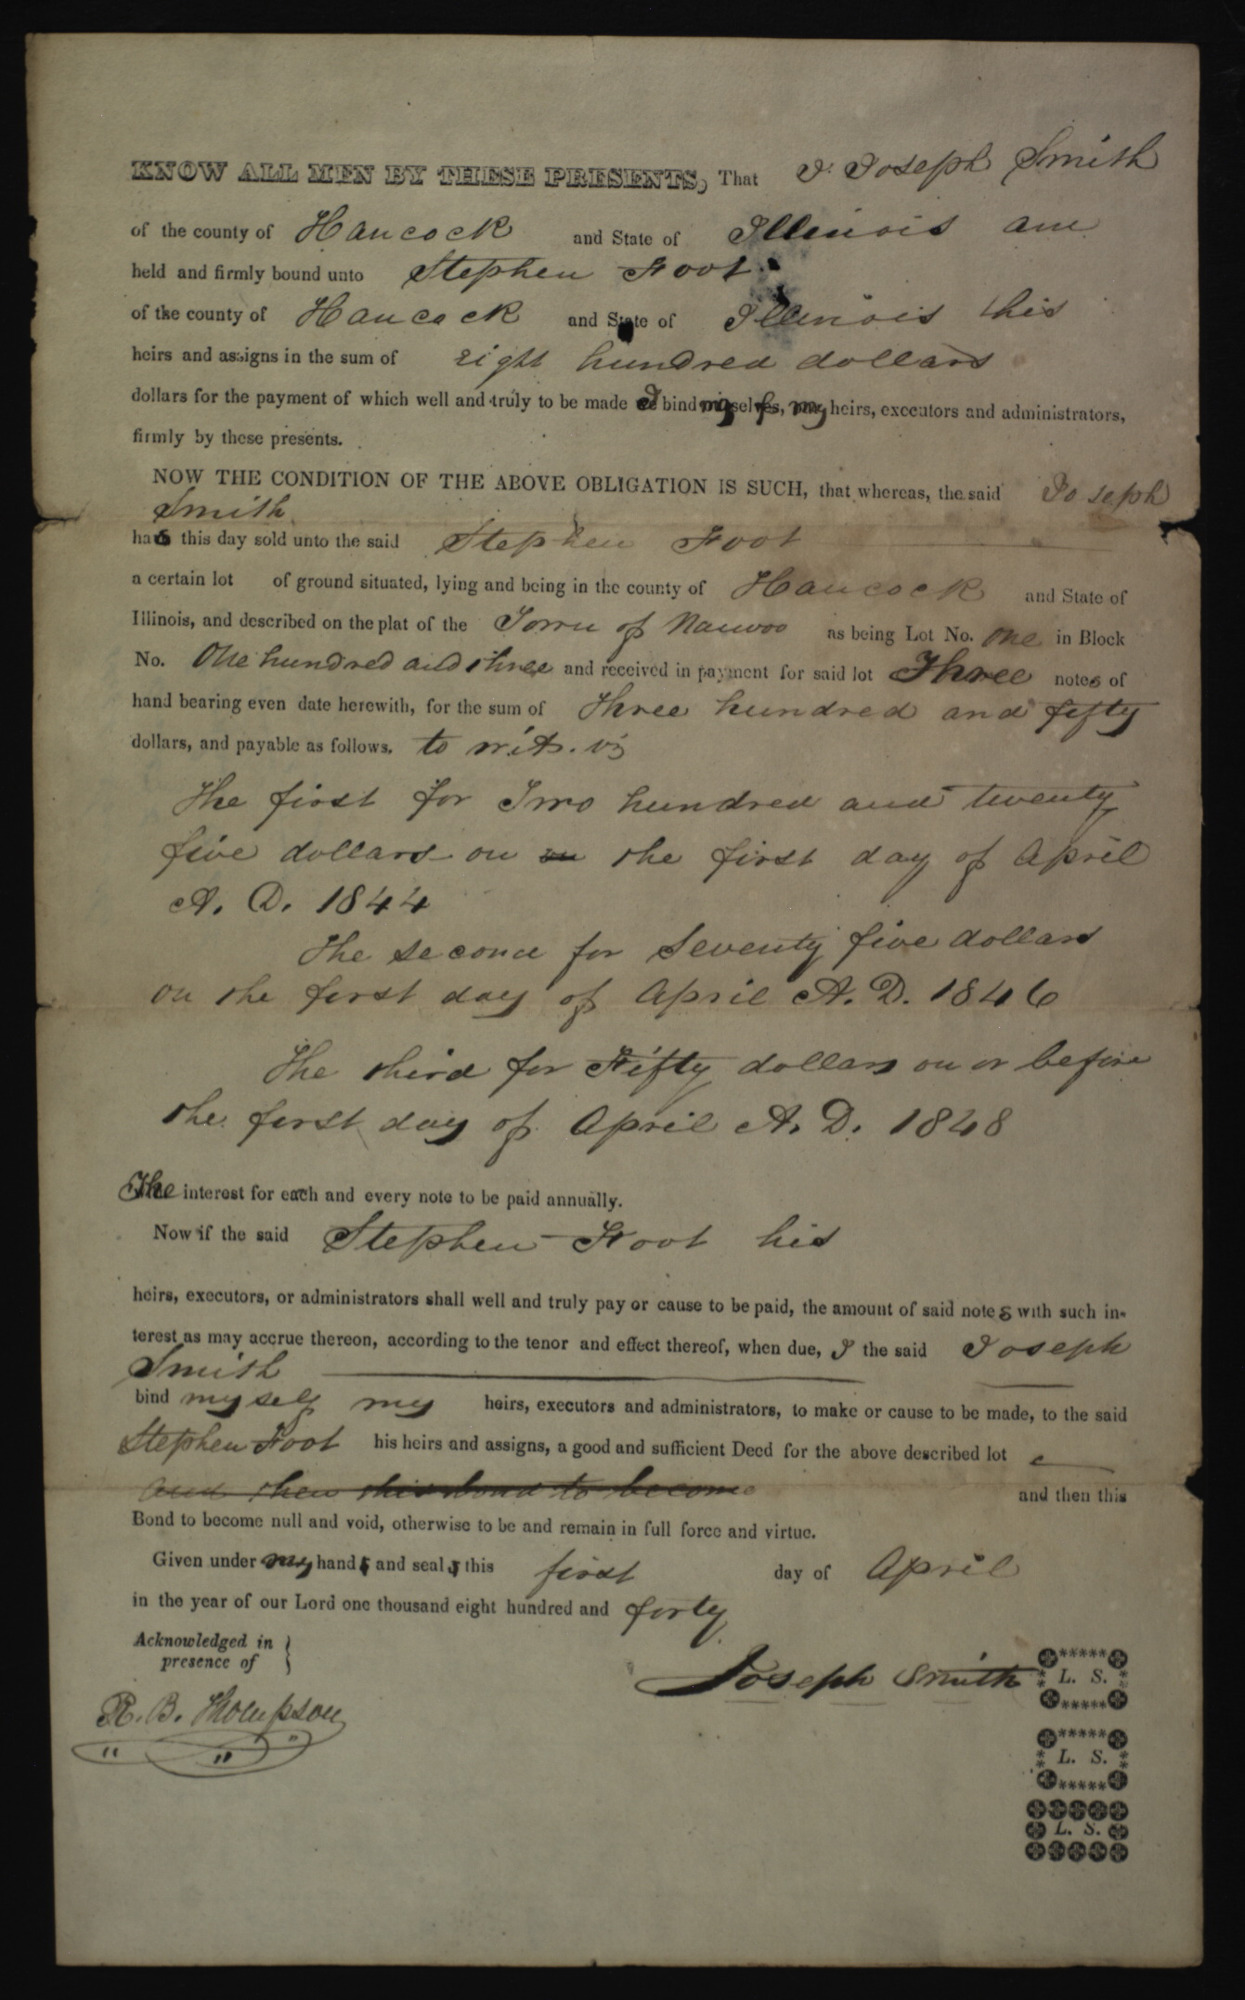 KNOW ALL MEN BY THESE PRESENTS, That I Joseph Smith
of the county of Hancock and State of Illinois am
held and firmly bound unto Stephen Foot
of the county of Hancock and State of Illinois his
heirs and assigns in the sum of eight hundred dollars
dollars for the payment of which well and truly to be made I bind my self, my heirs, executors and administrators,
firmly by these presents.
NOW THE CONDITION OF THE ABOVE OBLIGATION IS SUCH, that whereas, the said Joseph
Smith
has this day sold unto the said Stephen Foot
a certain lot of ground situated, lying and being in the county of Hancock and State of
Illinois, and described on the plat of the Town of Nauvoo as being Lot No. one in Block
No. One hundred and three and received in payment for said lot Three notes of
hand bearing even date herewith, for the sum of Three hundred and fifty
dollars, and payable as follows. to wit. viz
The first for Two hundred and twenty
five dollars on the first day of April
A. D. 1844
The second for Seventy five dollars
on the first day of April A. D. 1846
The third for Fifty dollars on or before
the first day of April A. D. 1848
The interest for each and every note to be paid annually.
Now if the said Stephen Foot his
heirs, executors, or administrators shall well and truly pay or cause to be paid, the amount of said notes with such in-
terest as may accrue thereon, according to the tenor and effect thereof, when due, I the said Joseph
Smith
bind my self my heirs, executors and administrators, to make or cause to be made, to the said
Stephen Foot his heirs and assigns, a good and sufficient Deed for the above described lot
and then this bond to become and then this
Bond to become null and void, otherwise to be and remain in full force and virtue.
Given under my hand and seal this first day of April
in the year of our Lord one thousand eight hundred and forty
Acknowledged in
presence of }
R. B. Thompson
Joseph Smith L. S.
L. S.
L. S.